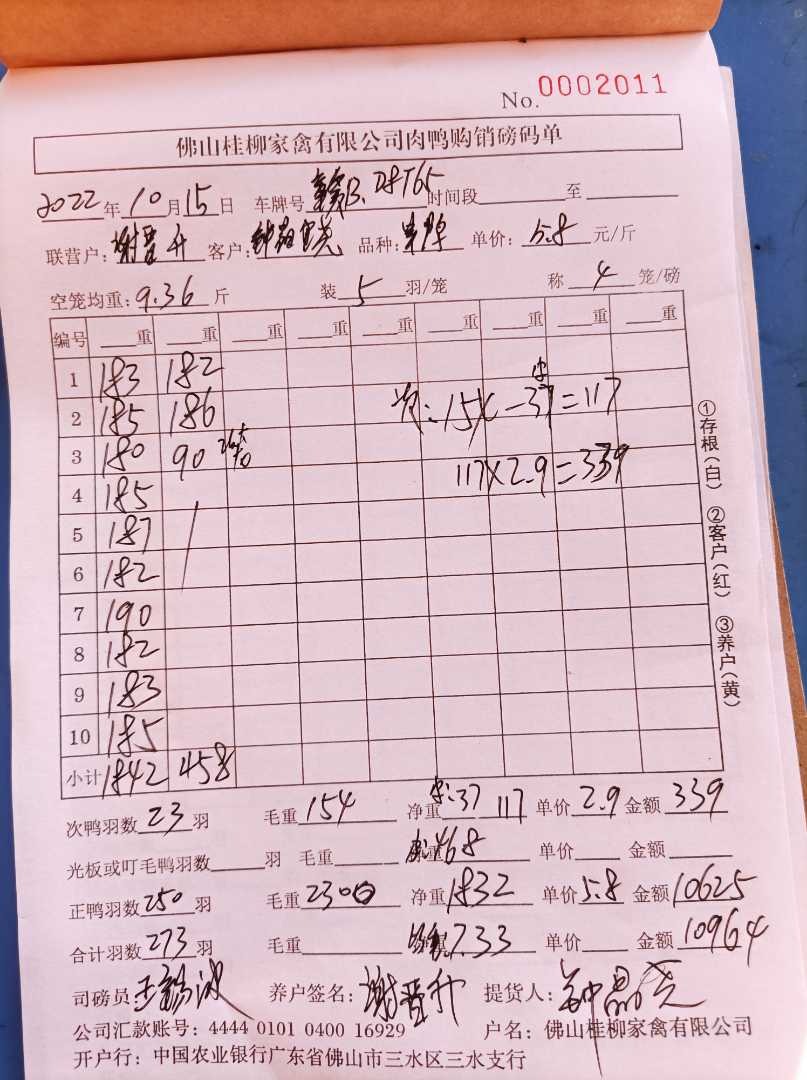 No. 0002011
佛山桂柳家禽有限公司肉鸭购销磅码单
2022年10月15日 车牌号 时间段 至
联营户:谢晋升 客户: 品种: 单价:5.8元/斤
空笼均重:9.36斤 装5羽/笼 称4笼/磅
编号 重 重 重 重 重 重 重 重 重
1 183 182
2 185 186 次:154-37=117
3 180 90
4 185 117×2.9=339
5 187
6 182
7 190
8 182
9 183
10 185
小计 1842 458
①存根(白) ②客户(红) ③养户(黄)
次鸭羽数23羽 毛重154 净重37 117 单价2.9 金额339
光板或叮毛鸭羽数 羽 毛重 468 单价 金额
正鸭羽数250羽 毛重2300 净重1832 单价5.8 金额10625
合计羽数273羽 毛重 7.33 单价 金额10964
司磅员 养户签名:谢晋升 提货人:
公司汇款账号:4444 0101 0400 16929 户名:佛山桂柳家禽有限公司
开户行:中国农业银行广东省佛山市三水区三水支行